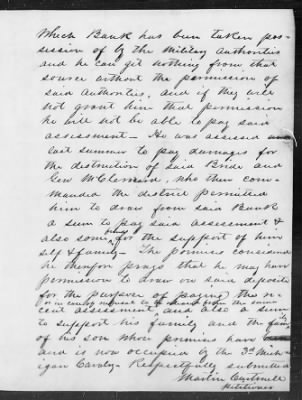 Which Bank has been taken pos-
session of by the Military authorities
and he can get nothing from that
source without the permission of
said authorities, and if they will
not grant him that permission
he will not be able to pay said
assessment - He was assessed
last summer to pay damages for
the distruction of said Bride and
Gen McClernard, who then com-
manded the district permitted
him to draw from said Bank
a sum to pay said assessment &
also some for the support of him
self & family - The premises considered
he therefore prays that he may have
permission to draw on said deposits
for the purpose of paying this re
cent assessment, and also a sum
to support his family and the
of his son whose premises have
and is now occupied by the 3rd Mich-
igan Cavalry - Respectfully submitted
Martin
Petitioner